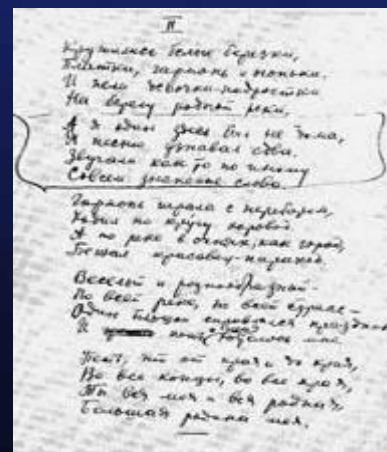 II
Кружились белые березки,
Платки, гармонь и огоньки,
И пели девочки-подростки
На берегу родной реки.
А я один здесь был не дома,
Я песню узнавал едва.
Звучали как-то по иному
Совсем знакомые слова.
Гармонь играла с перебором,
Ходил по кругу хоровод,
А по реке в огнях, как город,
Бежал красавец-пароход.
Веселый и разнообразный
По всей реке, по всей стране –
Один большой справлялся праздник
И
Поёт, от края и до края,
Во все концы, во все края,
Ты вся моя и вся родная,
Большая родина моя.